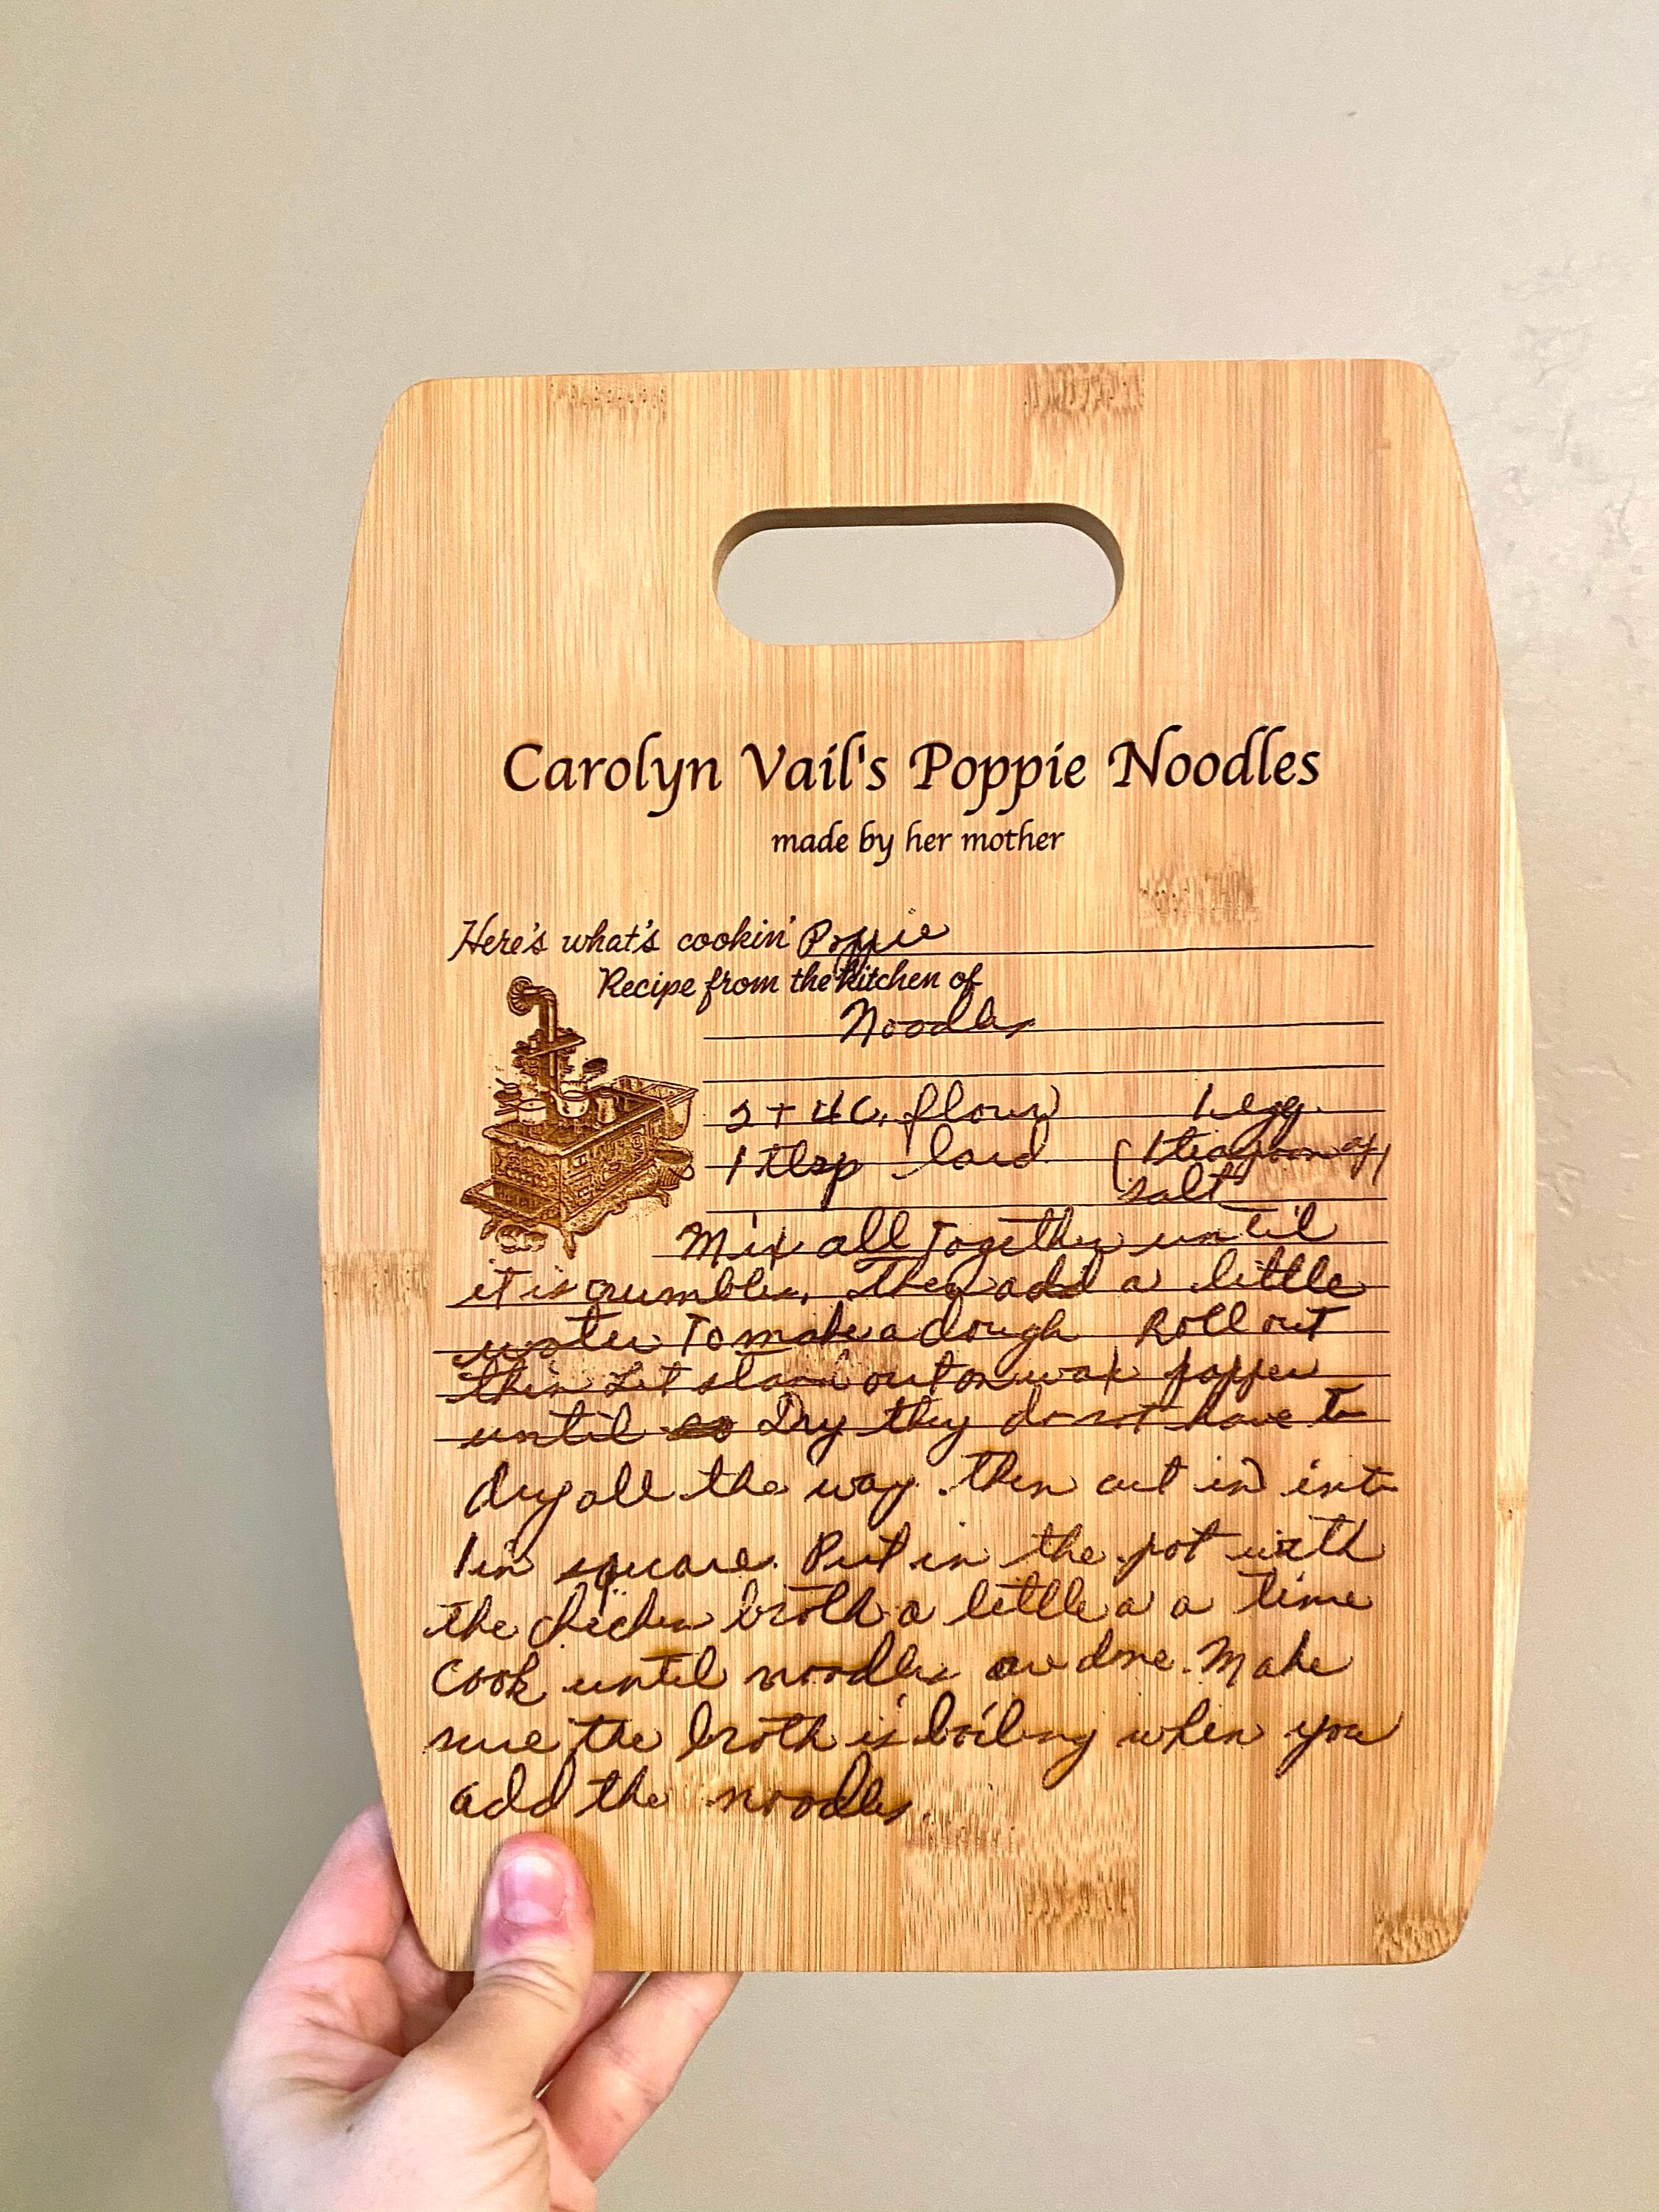 Carolyn Vail's Poppie Noodles
made by her mother
Here's what's cookin' Poppie
Recipe from the kitchen of
Noodles
flour 1 egg.
1 tbsp lard (1 teaspoon of)
salt
Mix all together until
it is crumbles, then add a little
water To make a dough Roll out
thin Let stand out on wax papper
until Dry they do not have to
dry all the way. then cut in into
1 in square. Put in the pot with
the chicken broth a little a a time
cook until noodles are done. Make
sure the broth is boiling when you
add the noodles.